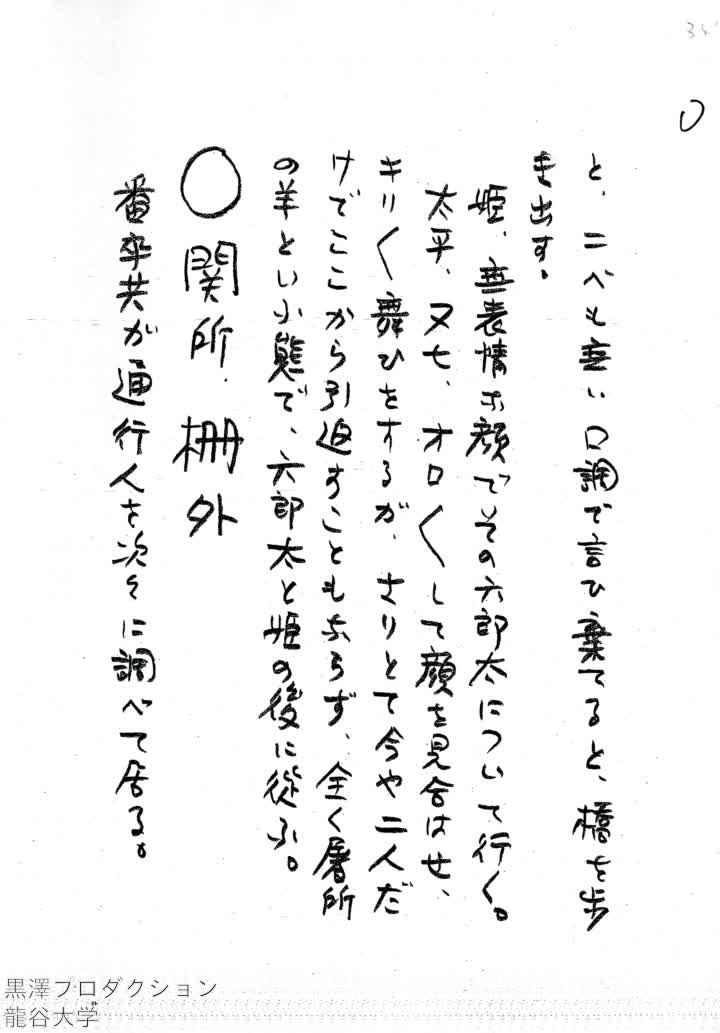 と、ニベも無い口調で言ひ棄てると、橋を歩
き出す。
姫、無表情な顔でその六郎太について行く。
太平、又七、オロ〱して顔を見合はせ、
キリ〱舞ひをするが、さりとて今や二人だ
けでここから引返すこともならず、全く屠所
の羊とい小態で、六郎太と姫の後に従ふ。
〇関所・柵外
番卒共が通行人を次々に調べて居る。
黒澤プロダクション
龍谷大学